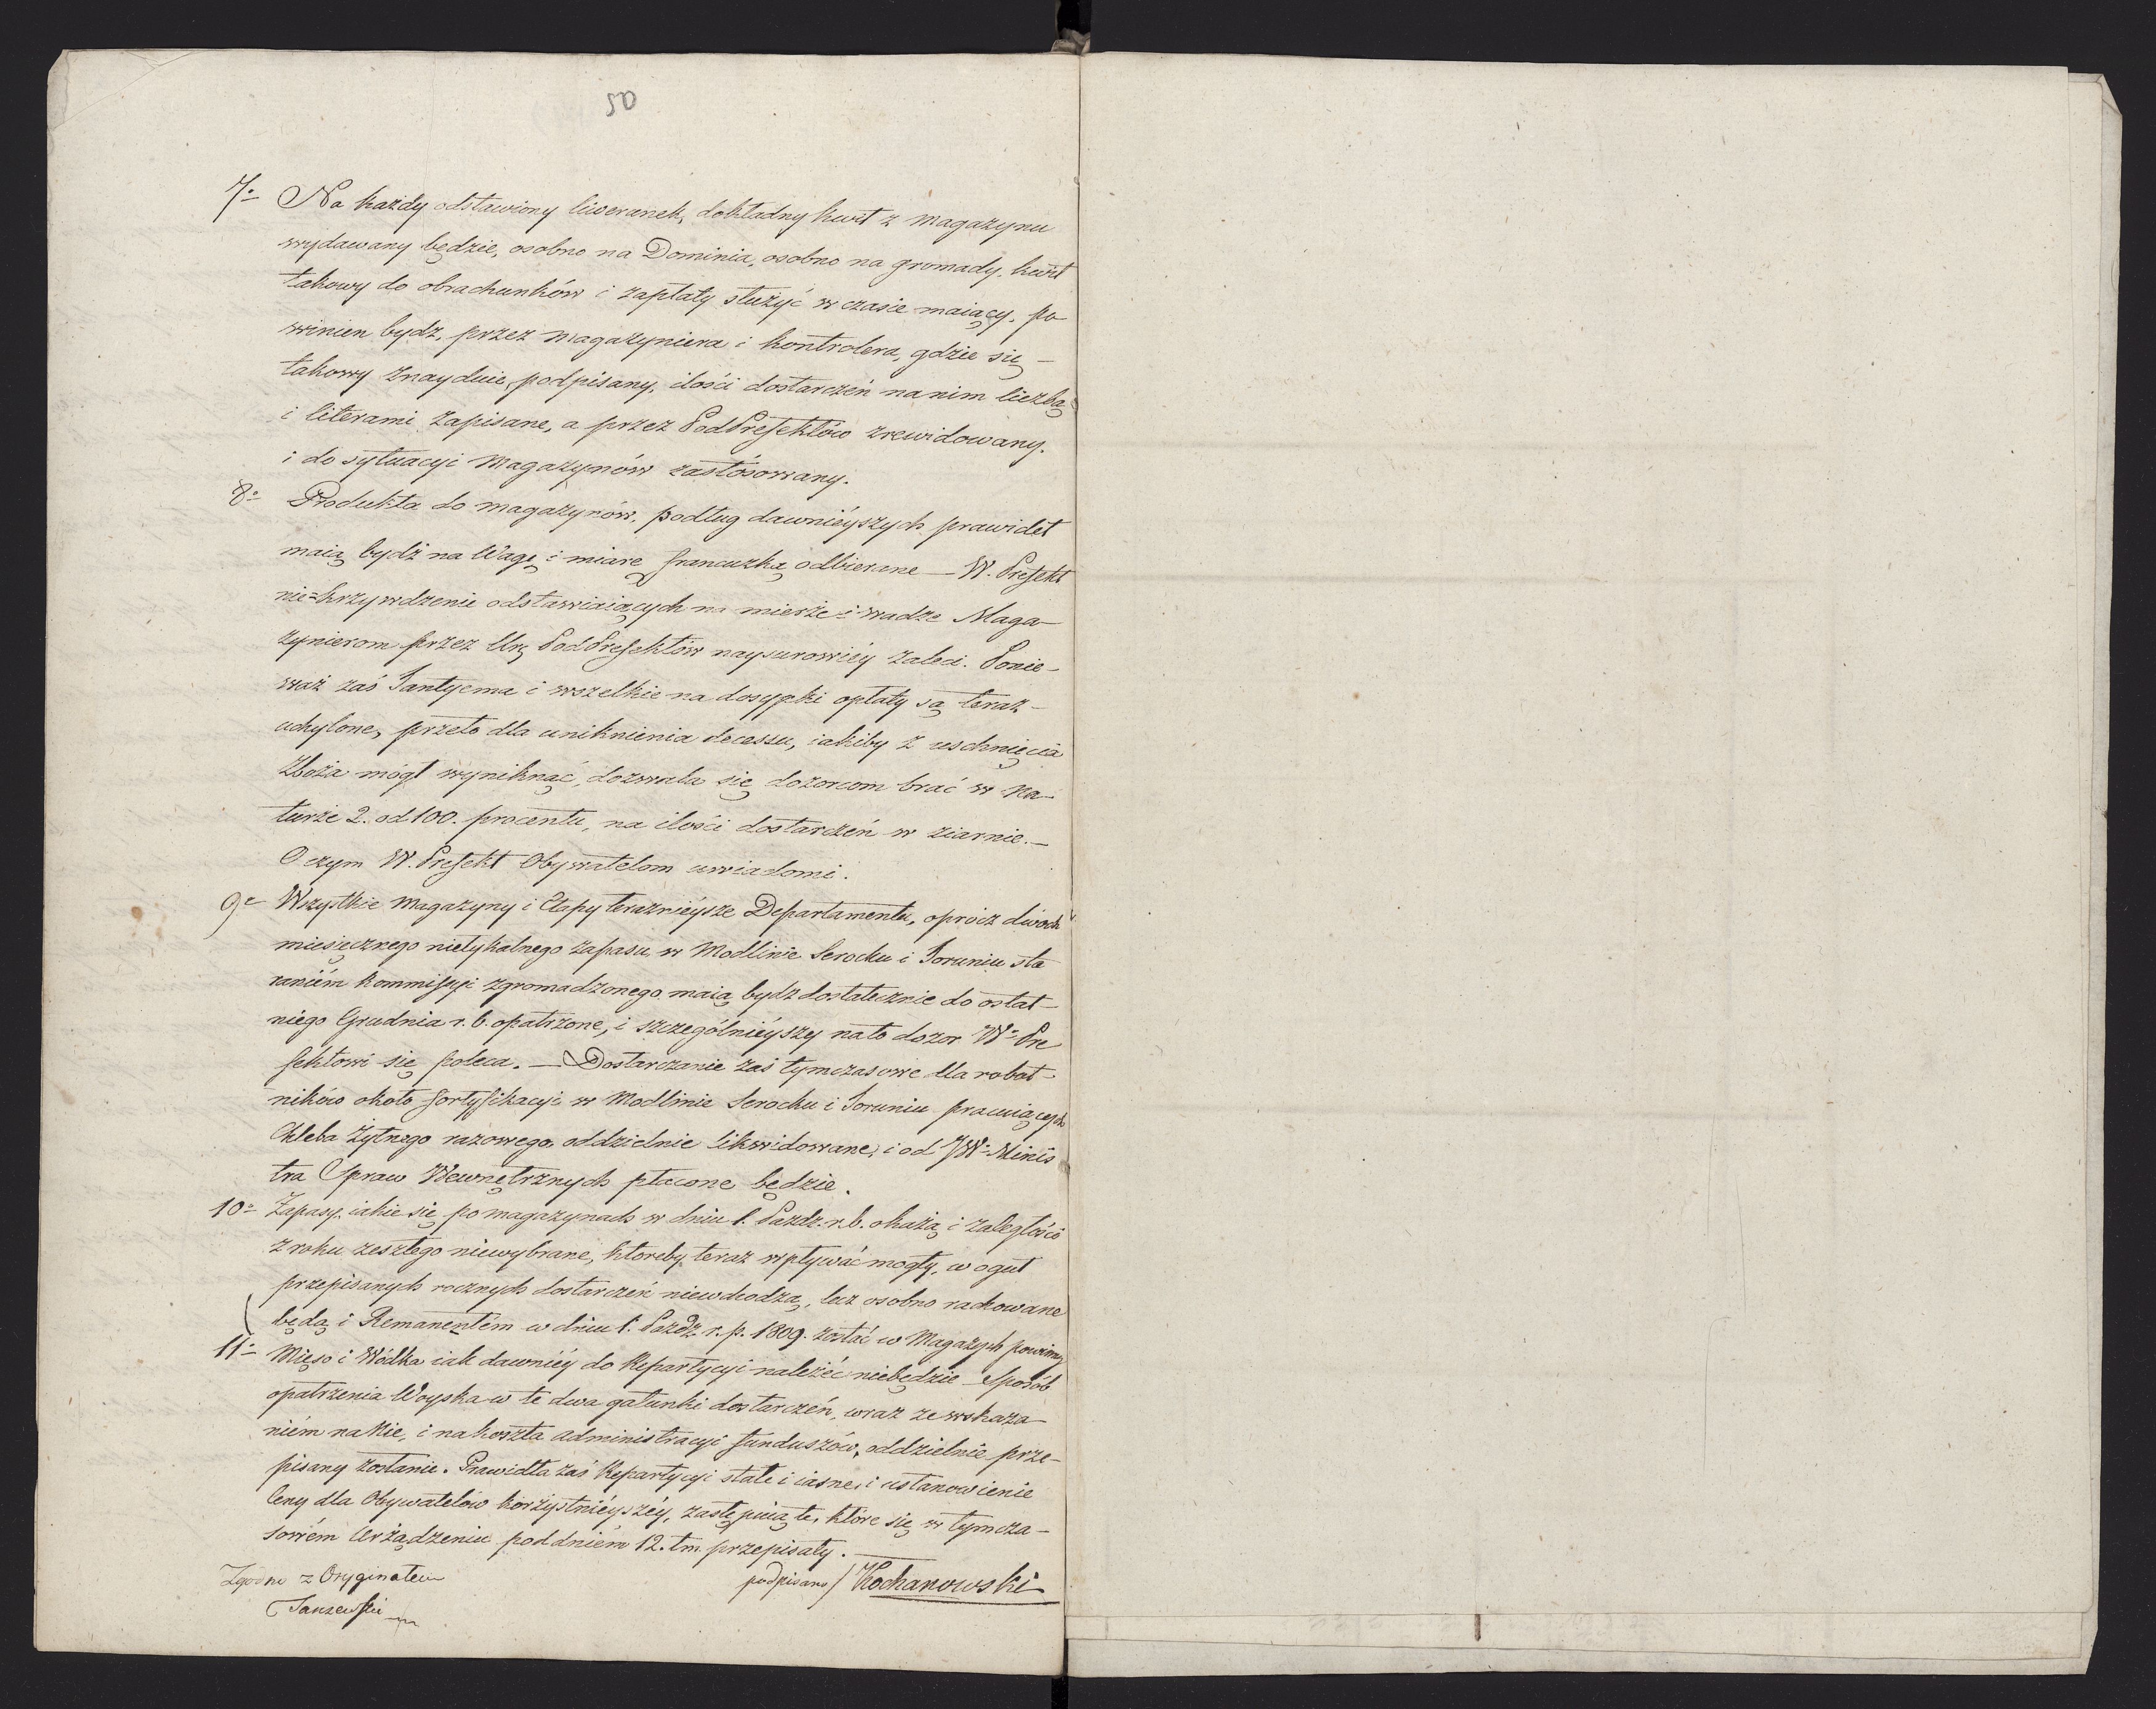 50
7o Na każdy odstawiony liweranek, dokładny kwit z magazynu
wydawany będzie, osobno na Dominia, osobno na gromady. kwit
takowy do obrachunków i zapłaty służyć w czasie maiący, po
winien bydz, przez magazyniera i kontrolera, gdzie się –
takowy znayduie, podpisany, ilości dostarczeń na nim liczbą
i literami zapisane, a przez PodPrefektów zrewidowany.
i do sytuacyi Magazynów zastósowany.
8o Produkta do magazynów, podług dawnieyszych prawideł
maią bydź na Wagę i miarę francuzką odbierane — W. Prefekt
nie=krzywdzenie odstawiaiących na mierze i wadze Maga–
zynierom przez Ur. PodPrefektów naysurowiéy zaleci. Ponie–
waż zaś Tantyema i wszelkie na dosypki opłaty są teraz –
uchylone, przeto dla uniknienia decessu, iakiby z uschnięcia
Zboża mógł wyniknąć, dozwala się dozorcom brać w na–
turze 2. od 100. procentu, na ilości dostarczeń w ziarnie. –
O czym W. Prefekt Obywatelom uwiadomi.
9o Wszystkie Magazyny i Etapy teraznieysze Departamentu, oprócz dwóch
miesięcznego nietykalnego zapasu w Modlinie Serocku i Toruniu sta
raniém Kommissyi zgromadzonego maią bydz dostatecznie do ostat–
niego Grudnia r. b. opatrzone, i szczególnieyszy na to dozor Wo Pre
fektowi się poleca. — Dostarczanie zaś tymczasowe dla robot–
ników około fortyfikacyi w Modlinie Serocku i Toruniu pracuiących
Chleba żytnego razowego, oddzielnie likwidowane, i od JWo Minis
tra Spraw Wewnętrznych płacone będzie.
10o Zapasy, iakie się po magazynach w dniu 1. Pazdz. r. b. okażą i zaległości
z roku zeszłego niewybrane, któreby teraz wpływać mogły, w oguł
przepisanych rocznych dostarczeń niewchodzą, lecz osobno rachowane
będą i Remanentém w dniu 1. Pazdz r. p. 1809. zostać w Magazych powinny
11o Mięso i Wódka iak dawniéy do Repartycyi należéć niebędzie – Sposób
opatrzenia Woyska w te dwa gatunki dostarczeń, wraz ze wskaza–
niém na Nie, i na koszta administracyi funduszów, oddzielnie prze–
pisany zostanie. Prawidła zaś Repartycyi stałe i iasne, i ustanowienie
Ceny dla Obywatelów korzystniéyszéy, zastępuią te, które się w tymcza–
sowém Urządzeniu pod dniém 12. t m. przepisały.
Zgodno z Oryginałem podpisano / Kochanowski